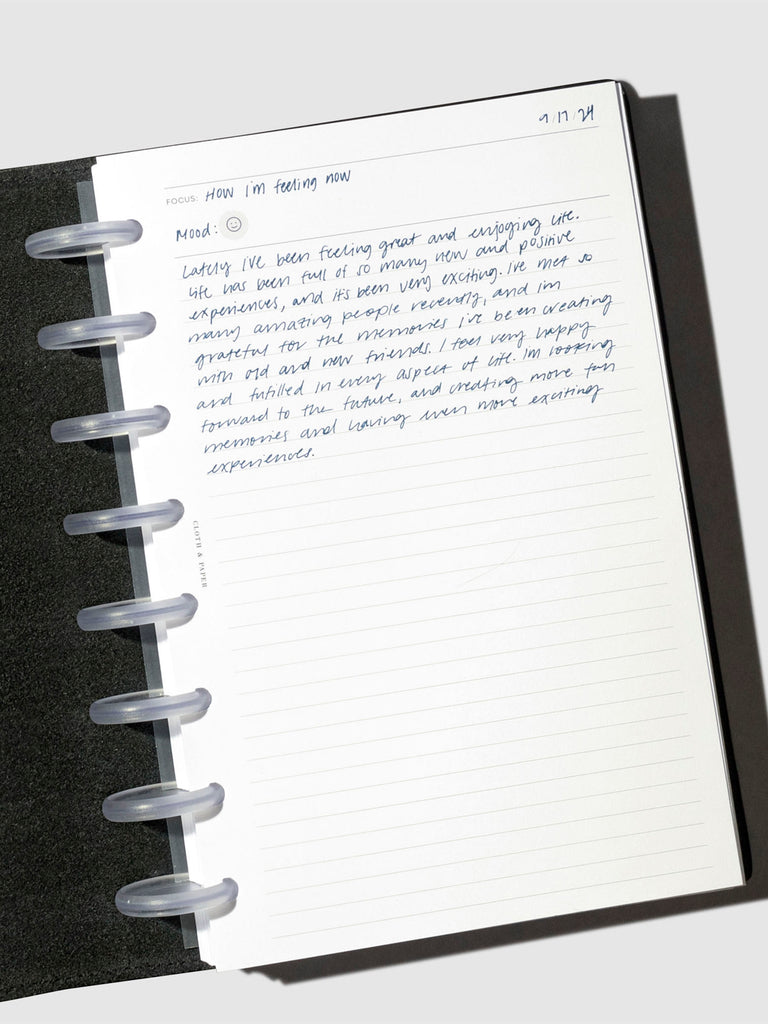 9/17/24
FOCUS: HOW I'm feeling now
Mood: ☺
Lately I've been feeling great and enjoying life.
Life has been full of so many new and positive
experiences, and it's been very exciting. I've met so
many amazing people recently, and im
grateful for the memories i've been creating
with old and new friends. I feel very happy
and fufilled in every aspect of life. Im looking
forward to the future, and creating more fun
memories and having even more exciting
experiences.
CLOTH & PAPER